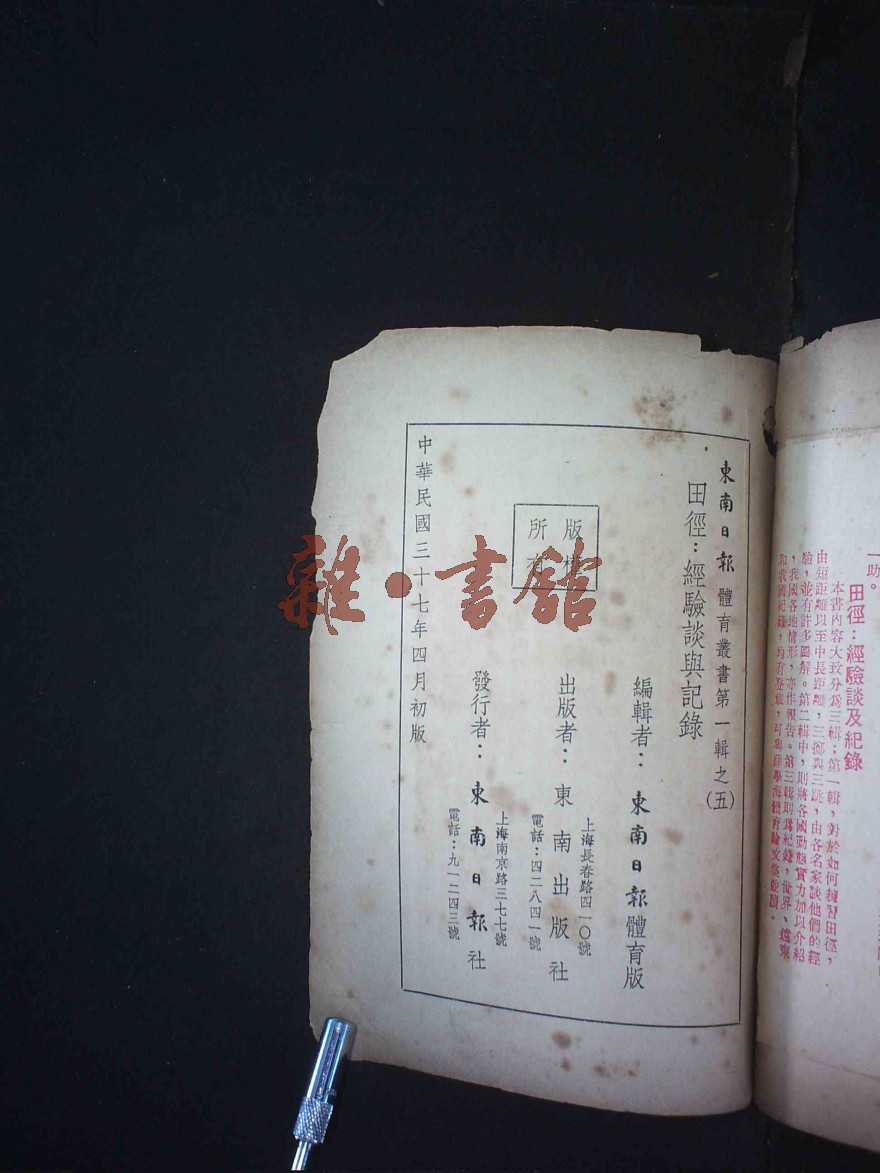 東南日報 體育叢書第一輯之(五)
田徑：經驗談與記錄
版權
所有
編輯者：東南日報體育版
出版者：東南出版社
上海長春路四一〇號
電話：四二八四一號
發行者：東南日報社
上海南京路三七七號
電話：九一二四三號
中華民國三十七年四月初版
雜·書館
一助。
田徑：經驗談及紀錄
本書內容大致分爲三輯；第一輯，對於如何練習田徑，
由短距離以至中長距離，三擲與三跳，由各名家談他們的經
驗，並有許多圖解。第二輯中，則將各國動態實力加以介紹
，我國各地情形，亦作報告。第三輯則爲紀錄，世界、遠東
和我國紀錄，均有登載，可與